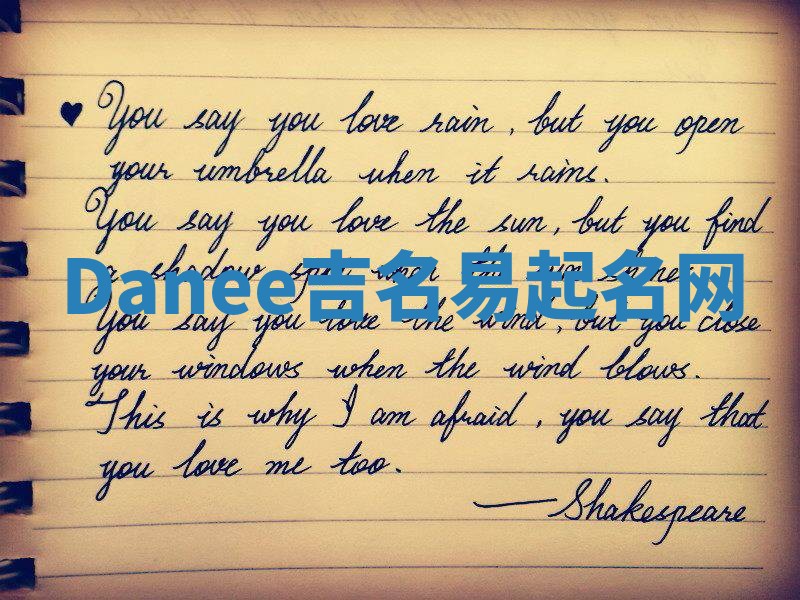 ♥ You say you love rain, but you open
your umbrella when it rains.
You say you love the sun, but you find
a shadow spot when the sun shines.
Danee吉名易起名网
You say you love the wind, but you close
your windows when the wind blows.
This is why I am afraid, you say that
you love me too.
—Shakespeare